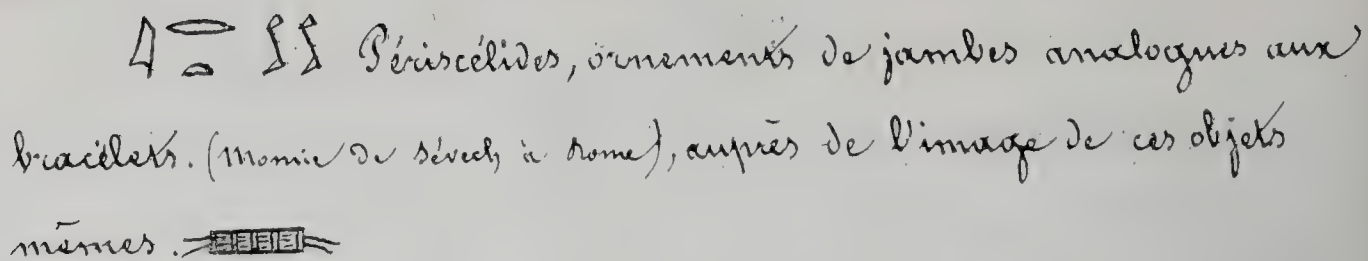 Périscélides, ornements de jambes analogues aux
bracélets. (Momie de Sévech à Rome), auprès de l'image de ces objets
mêmes.